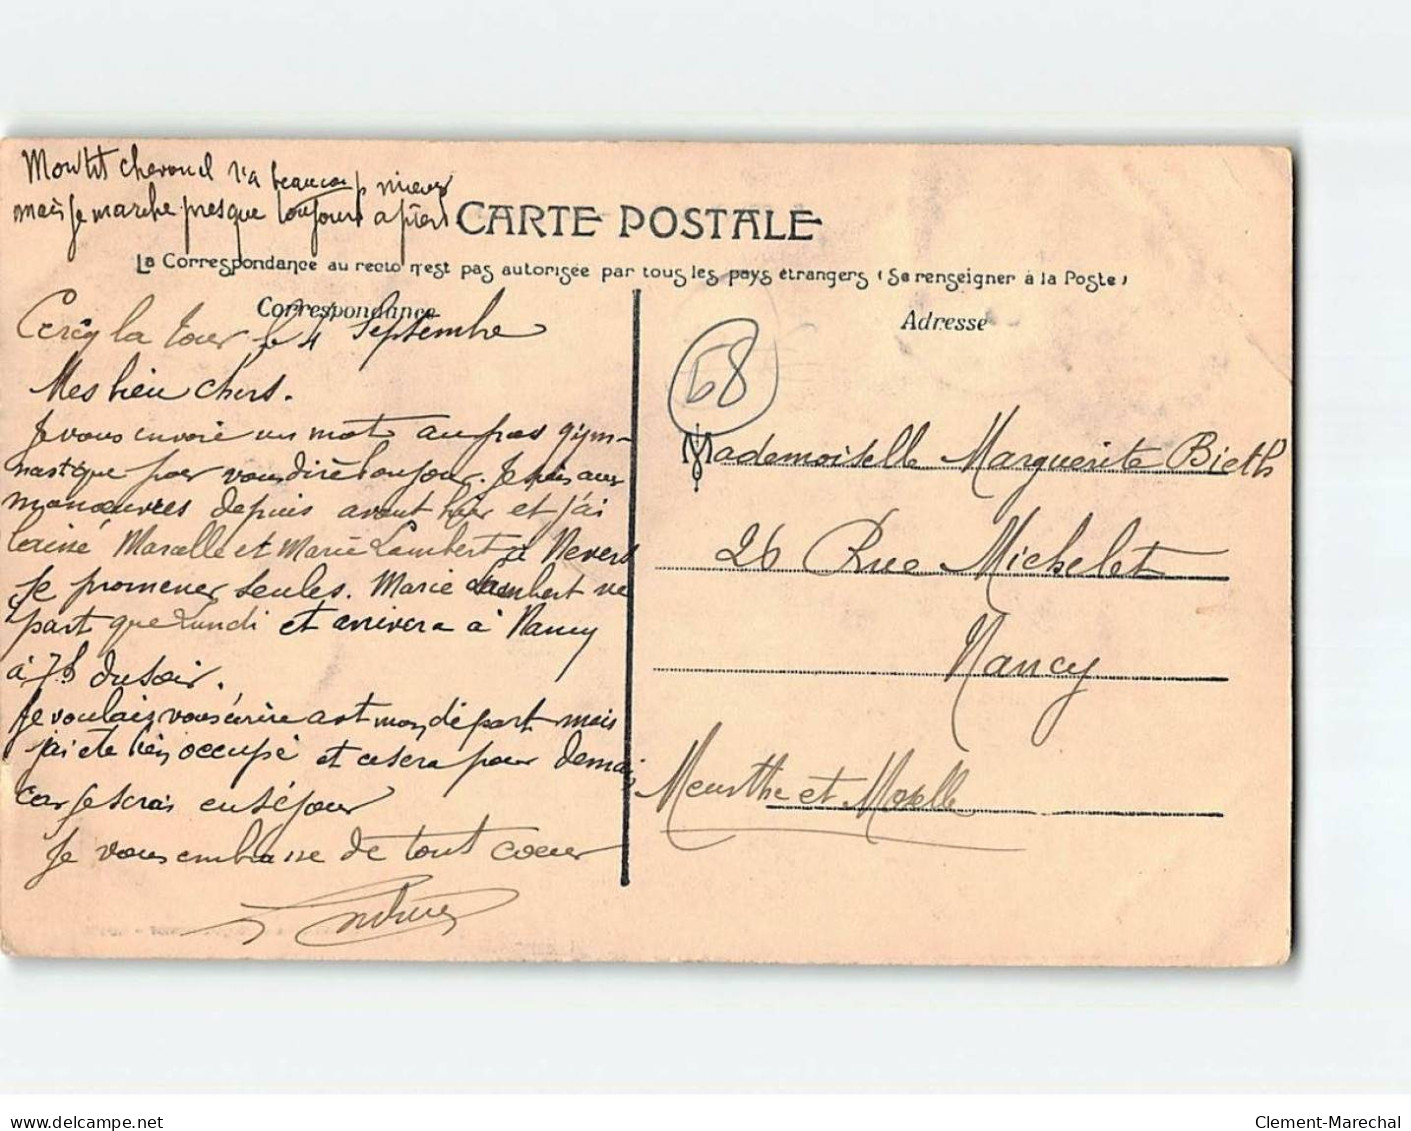 Mon tit cheval va beaucoup mieux
mais je marche presque toujours a pied
CARTE POSTALE
La Correspondance au recto n'est pas autorisée par tous les pays étrangers (Se renseigner à la Poste)
Correspondance
Adresse
la Tour le 4 Septembre
68
Mes bien chers.
Je vous envoie un mot au pas gym-
nastique pour vous dire bonjour. Je suis aux
manœuvres depuis avant hier et j'ai
laissé Marcelle et Marie Lambert à Nevers
se promener seules. Marie Lambert ne
part que Lundi et arrivera à Nancy
à 7h du soir.
Je voulais vous écrire avt mon départ mais
j'ai été bien occupé et ce sera pour demain
car je serai en séjour
Je vous embrasse de tout coeur
Mademoiselle Marguerite Bieth
26 Rue Michelet
Nancy
Meurthe et Moselle
delcampe.net
Clement-Marechal